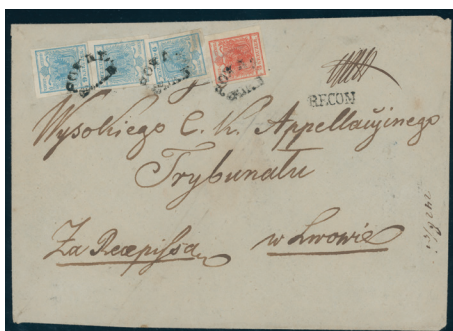 RECOM
Wysokiego C. K. Appellacyjnego
Trybunału
Za Recepissą w Lwowie